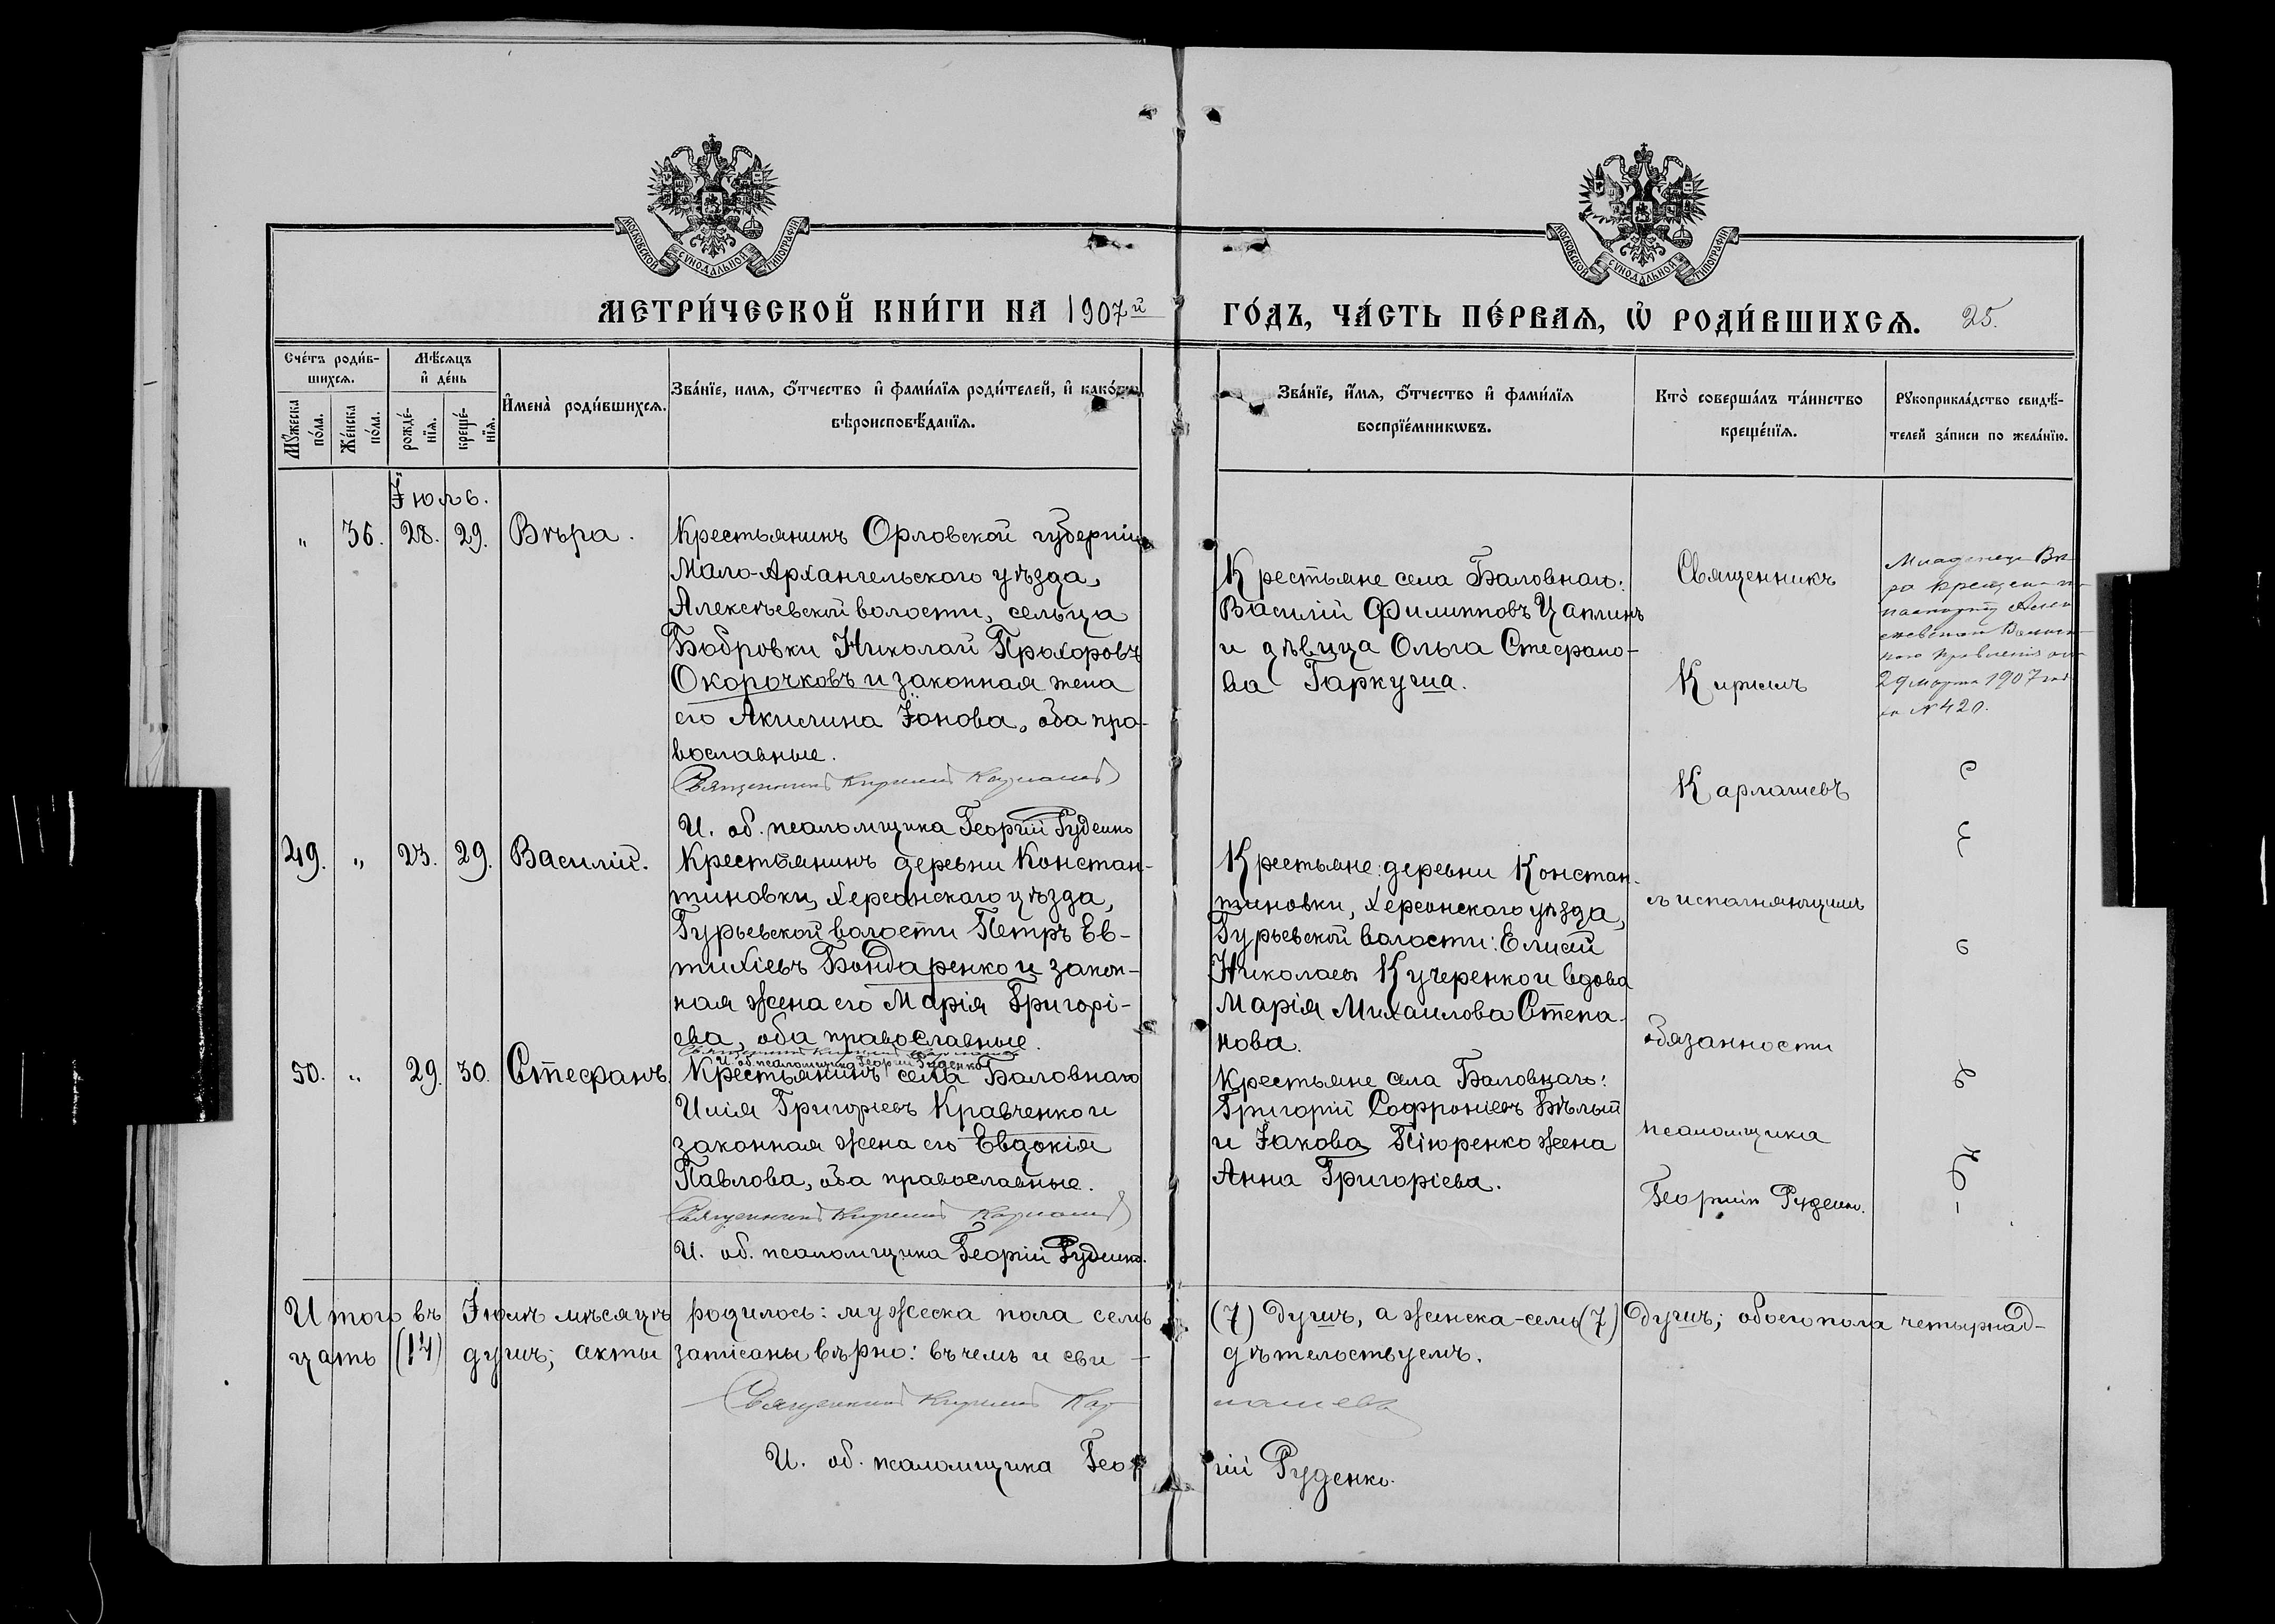 МОСКОВСКОЙ СѴНОДАЛЬНОЙ ТИПОГРАФІИ
МОСКОВСКОЙ СѴНОДАЛЬНОЙ ТИПОГРАФІИ
МЕТРИ́ЧЕСКОЙ КНИ́ГИ НА 1907й
ГО́ДЪ, ЧА́СТЬ ПЕ́РВАЯ, Ѡ҆ РОДИ́ВШИХСЯ. 25.
Сче́тъ роди́в-
шихся.
Мꙋ́жеска по́ла.
Же́нска по́ла.
Мѣ́сяцъ
и҆ де́нь
рожде́-
нїя.
креще́-
нїя.
И҆мена̀ роди́вшихся.
Зва́нїе, имя, ѻ҆́тчество и҆ фами́лїя роди́телей, и҆ како́гѡ
вѣроисповѣ́данїя.
Зва́нїе, и҆́мя, ѻ҆́тчество и҆ фами́лїя
воспрїе́мникѡвъ.
Кто̀ соверша́лъ та́инство
креще́нїя.
Рꙋкоприкла́дство свидѣ́-
телей за́писи по жела́нїю.
Іюль.
" 36. 28. 29. Вѣра.
Крестьянинъ Орловской губерніи
Мало-Архангельскаго уѣзда,
Алексѣевской волости, сельца
Бобровки Николай Прохоровъ
Окорочковъ и законная жена
его Акилина Іонова, оба пра-
вославные.
Священникъ Кириллъ Карлашевъ
И. об. псаломщика Георгій Руденко
Крестьяне села Баловнаго:
Василій Филипповъ Цаплинъ
и дѣвица Ольга Стефано-
ва Гаркуша.
Священникъ
Кириллъ
Карлашевъ
съ исполняющимъ
обязанности
псаломщика
Георгіемъ Руденко.
Младенецъ Вѣ-
ра крещена по
паспорту Алек-
сѣевскаго Волост-
ного правленія отъ
29 марта 1907 года
за № 420.
49. " 23. 29. Василій.
Крестьянинъ деревни Констан-
тиновки, Херсонскаго уѣзда,
Гурьевской волости Петръ Ев-
тихіевъ Бондаренко и закон-
ная жена его Марія Григорі-
ева, оба православные.
Священникъ Кириллъ Карлашевъ
И. об. псаломщика Георгій Руденко
Крестьяне: деревни Констан-
тиновки, Херсонскаго уѣзда,
Гурьевской волости: Елисей
Николаевъ Кучеренко и вдова
Марія Михаилова Степа-
нова.
50. " 29. 30. Стефанъ.
Крестьянинъ села Баловнаго
Илія Григоріевъ Кравченко и
законная жена его Евдокія
Павлова, оба православные.
Священникъ Кириллъ Карлашевъ
И. об. псаломщика Георгій Руденко.
Крестьяне села Баловнаго:
Григорій Софроніевъ Бѣлый
и Іакова Піюренко жена
Анна Григоріева.
Итого въ Іюлѣ мѣсяцѣ родилось: мужеска пола семь (7) душъ, а женска-семь (7) душъ; обоего пола четырнад-
цать (14) душъ; акты записаны вѣрно: въ чемъ и сви-дѣтельствуемъ.
Священникъ Кириллъ Карлашевъ
И. об. псаломщика Георгій Руденко.